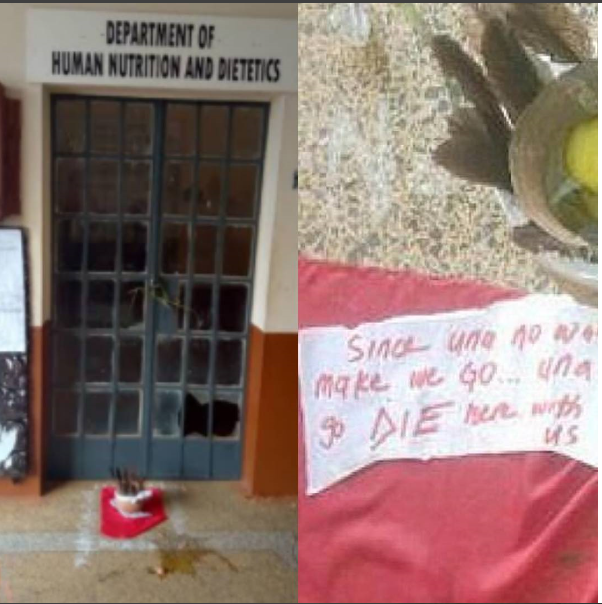 DEPARTMENT OF
HUMAN NUTRITION AND DIETETICS
Since una no
make we GO... una
go DIE here with
us